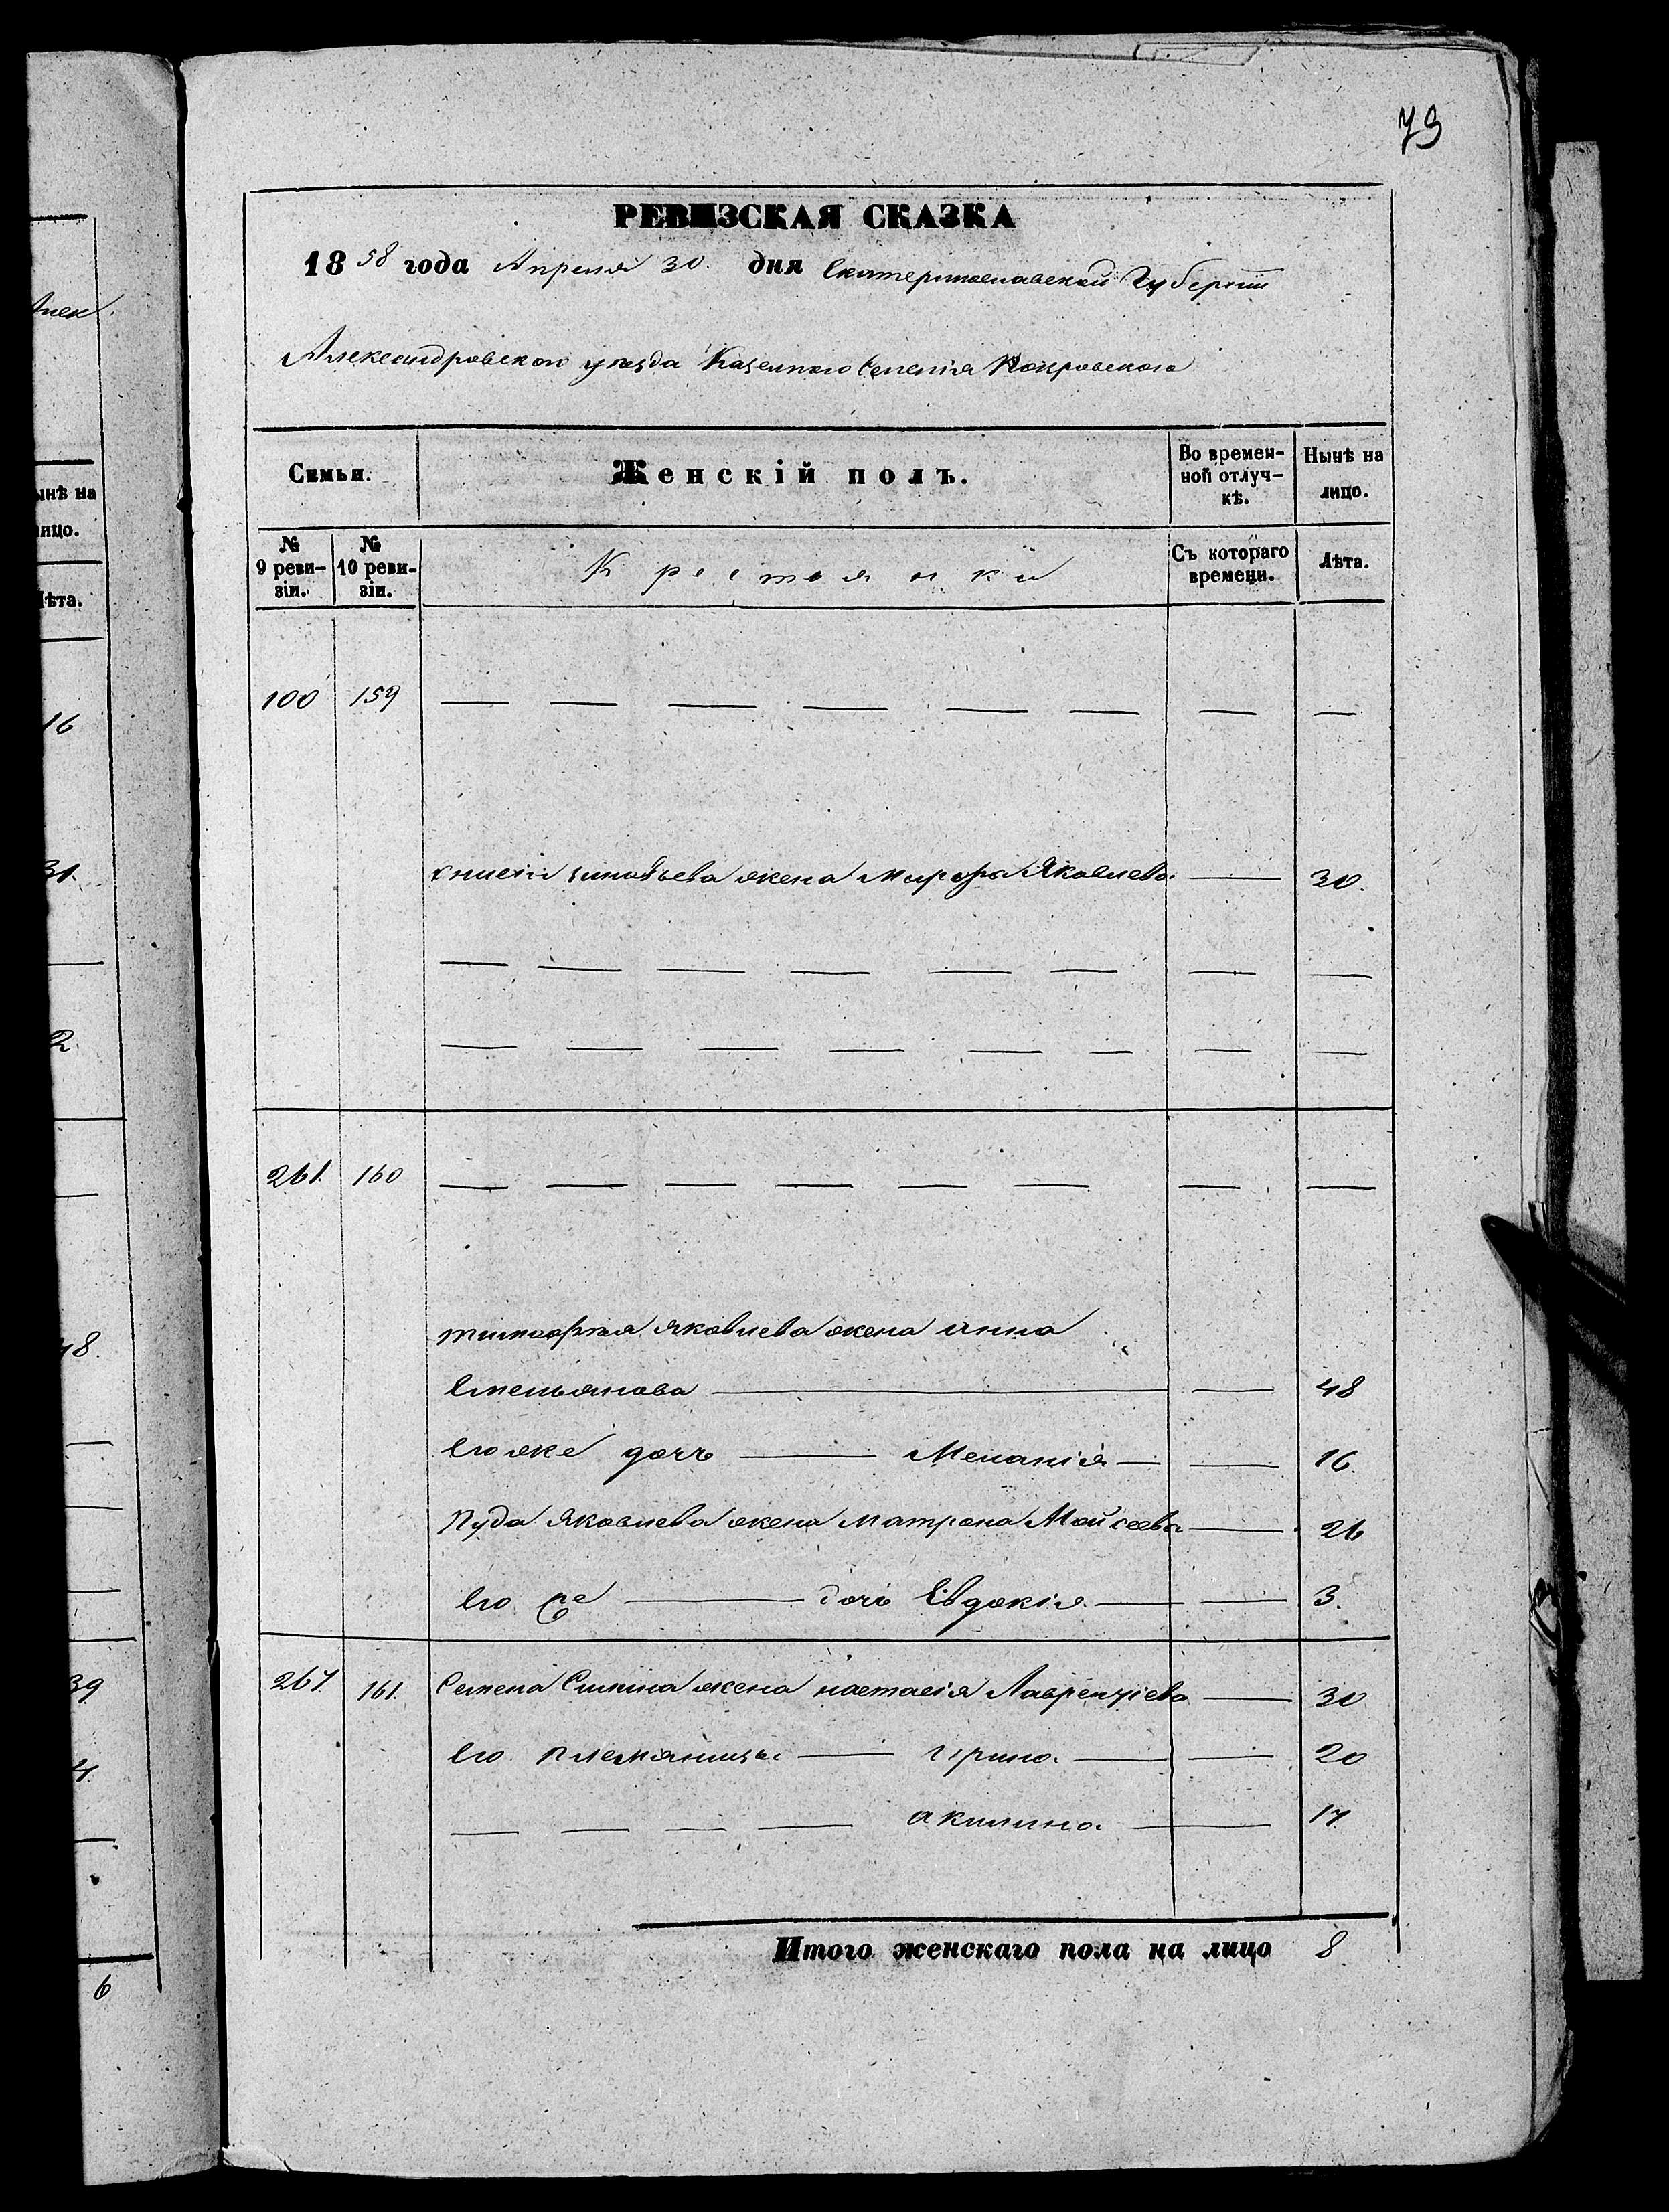 73
РЕВИЗСКАЯ СКАЗКА
1858 года Апреля 30. дня Екатеринославской Губернiи
Александровского уѣзда Казенного Селенiя Покровского
Семьи. Женскiй полъ. Во времен-ной отлуч-кѣ. Нынѣ на лицо.
№ 9 реви-зiи. № 10 реви-зiи. Крестьянки Съ котораго времени. Лѣта.
100 159 — — — — — — — —
зиновьева жена Марфа Яковлева — 30.
— — — — — — — —
— — — — — — — —
261. 160 — — — — — — — —
тимофея яковлева жена анна
Емельянова — — 48
Его же дочь — Меланiя — — 16.
Пуда Яковлева жена матрона Мойсеева — 26
Его же — дочь Евдокiя — — 3.
267. 161. Семена жена настасiя Лаврентiева — 30
Его племяницы — Ирина — — 20
— — — — акилина — 17
Итого женскаго пола на лицо 8
ынѣ на
ицо.
ѣта.
16
31.
2
48.
39
4.
6